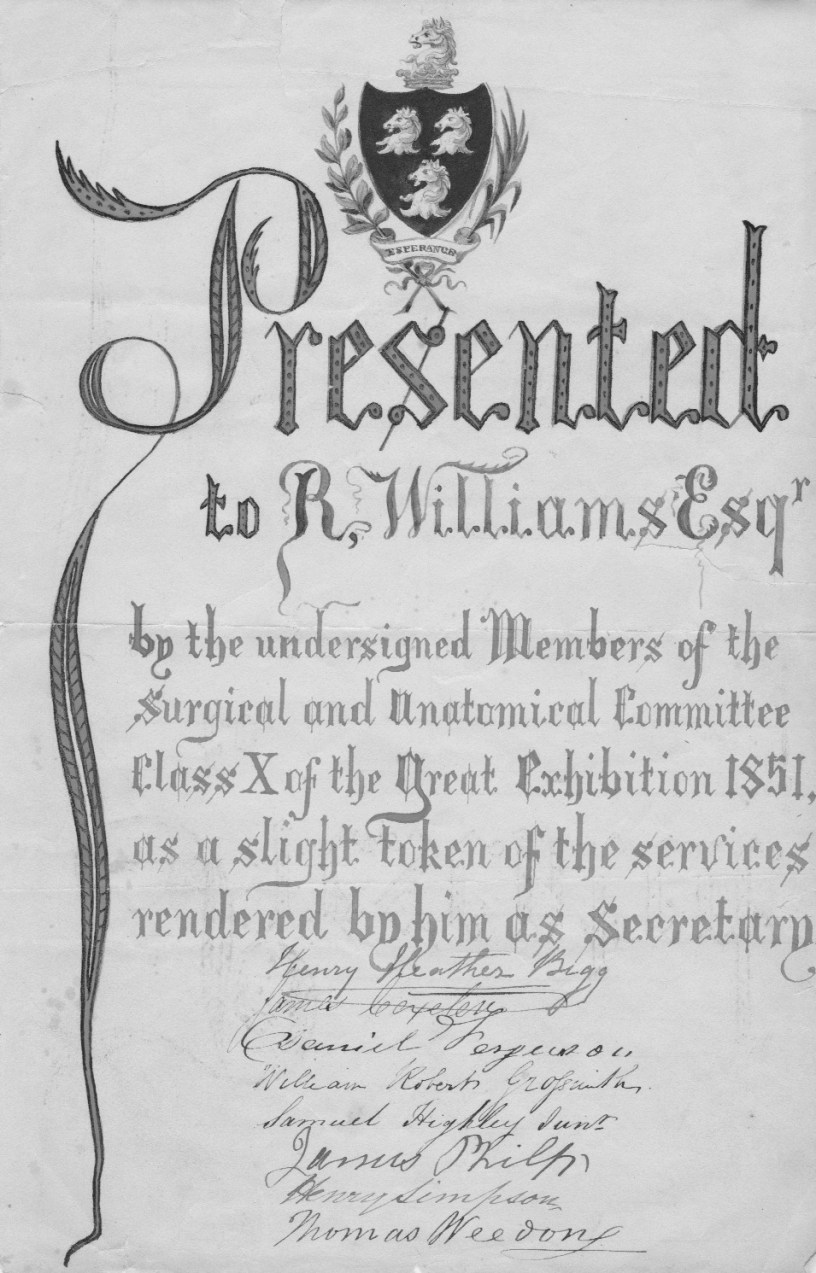 ESPERANCE
Presented
to R, Williams Esqr
by the undersigned Members of the
Surgical and Anatomical Committee
Class X of the Great Exhibition 1851,
as a slight token of the services
rendered by him as Secretary
Henry Heather Bigg
James Coxeter
Daniel Ferguson
William Robert Grossmith
Samuel Highley Junr
James Philp
Henry Simpson
Thomas Weedon